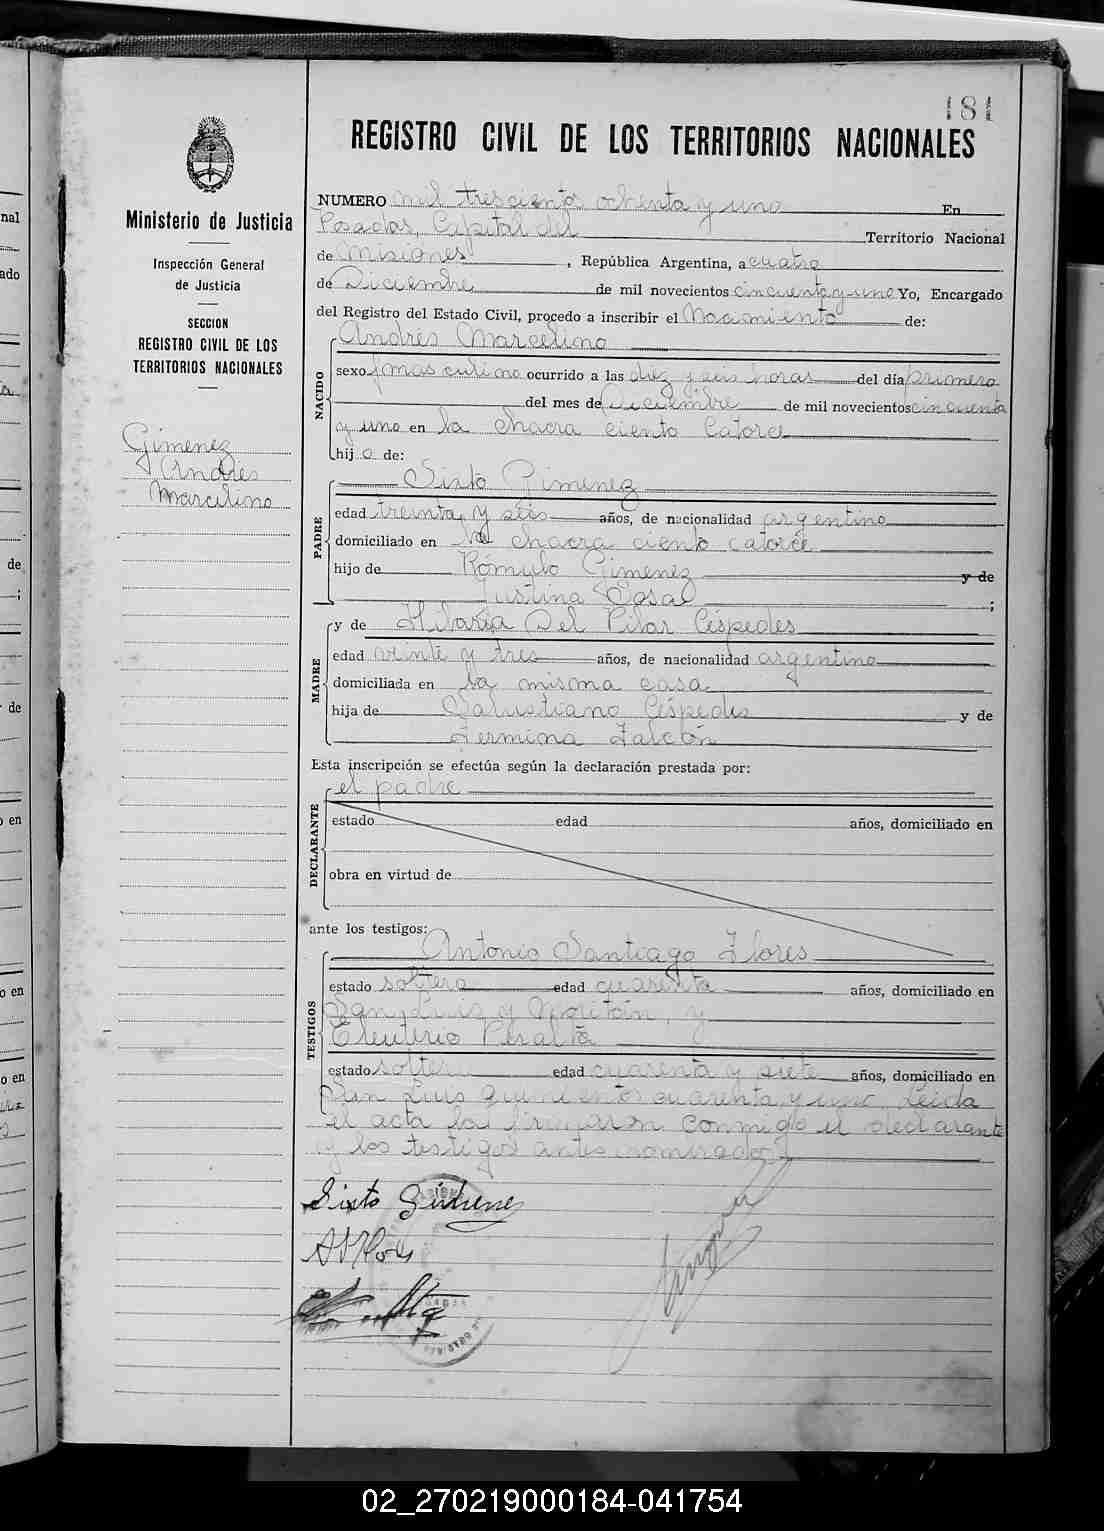 181
REGISTRO CIVIL DE LOS TERRITORIOS NACIONALES
Ministerio de Justicia
Inspección General
de Justicia
SECCION
REGISTRO CIVIL DE LOS
TERRITORIOS NACIONALES
Gimenez
Andrés
Marcelino
NUMERO mil trescientos ochenta y uno En
Posadas, Capital del Territorio Nacional
de Misiones, República Argentina, a cuatro
de Diciembre de mil novecientos cincuenta y uno Yo, Encargado
del Registro del Estado Civil, procedo a inscribir el Nacimiento de:
NACIDO
Andrés Marcelino
sexo masculino ocurrido a las diez y seis horas del día primero
del mes de Diciembre de mil novecientos cincuenta
y uno en la chacra ciento catorce
hijo de:
PADRE
Sixto Gimenez
edad treinta y seis años, de nacionalidad argentino
domiciliado en la chacra ciento catorce
hijo de Rómulo Gimenez y de
Justina ;
MADRE
y de Hilaria Del Pilar Céspedes
edad veinte y tres años, de nacionalidad argentina
domiciliada en la misma casa
hija de Salustiano Céspedes y de
Fermina Falcón
Esta inscripción se efectúa según la declaración prestada por:
DECLARANTE
el padre
estado edad años, domiciliado en
obra en virtud de
ante los testigos:
TESTIGOS
Antonio Santiago Flores
estado soltero edad cuarenta años, domiciliado en
San Luis y , y
Eleuterio Peralta
estado soltero edad cuarenta y siete años, domiciliado en
San Luis quinientos cuarenta y uno. Leida
el acta la firmaron conmigo el declarante
y los testigos antes nombrados
Sixto Gimenez
02_270219000184-041754